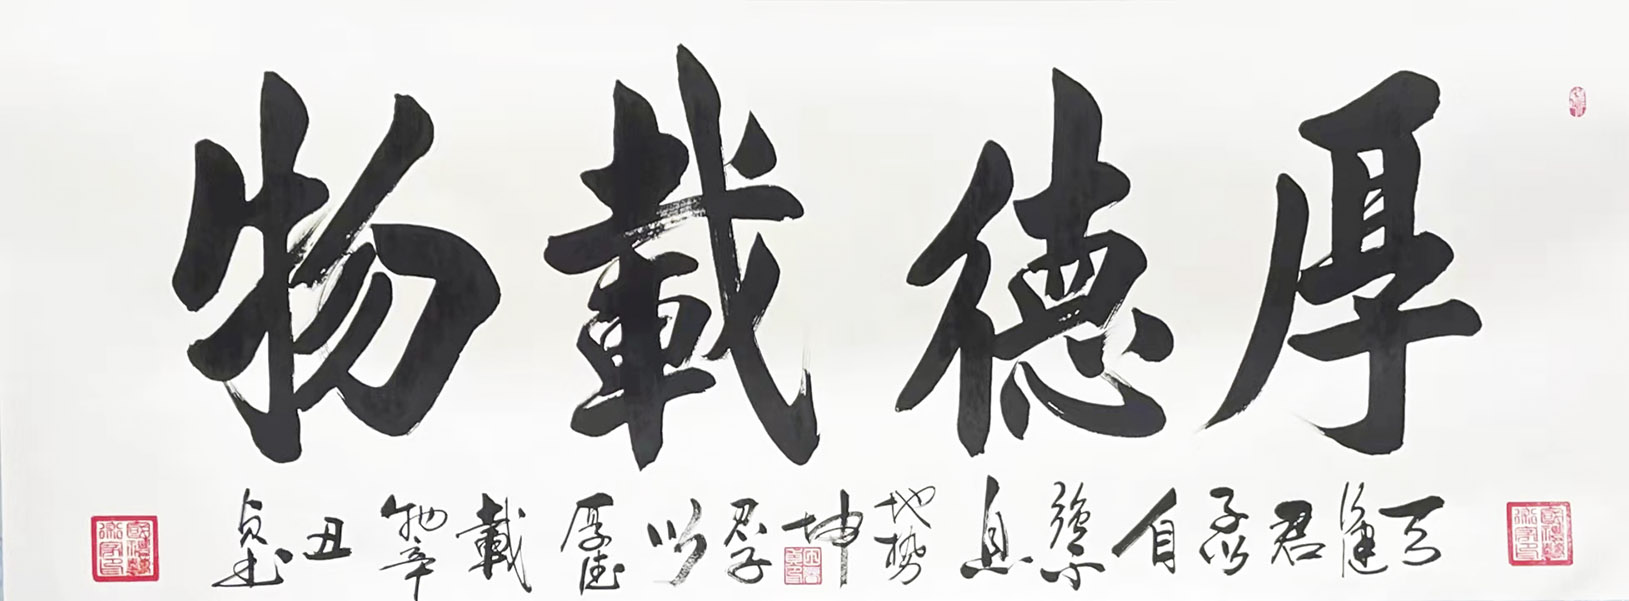 厚德載物
天行健君子以自強不息地勢坤君子以厚德載物辛丑